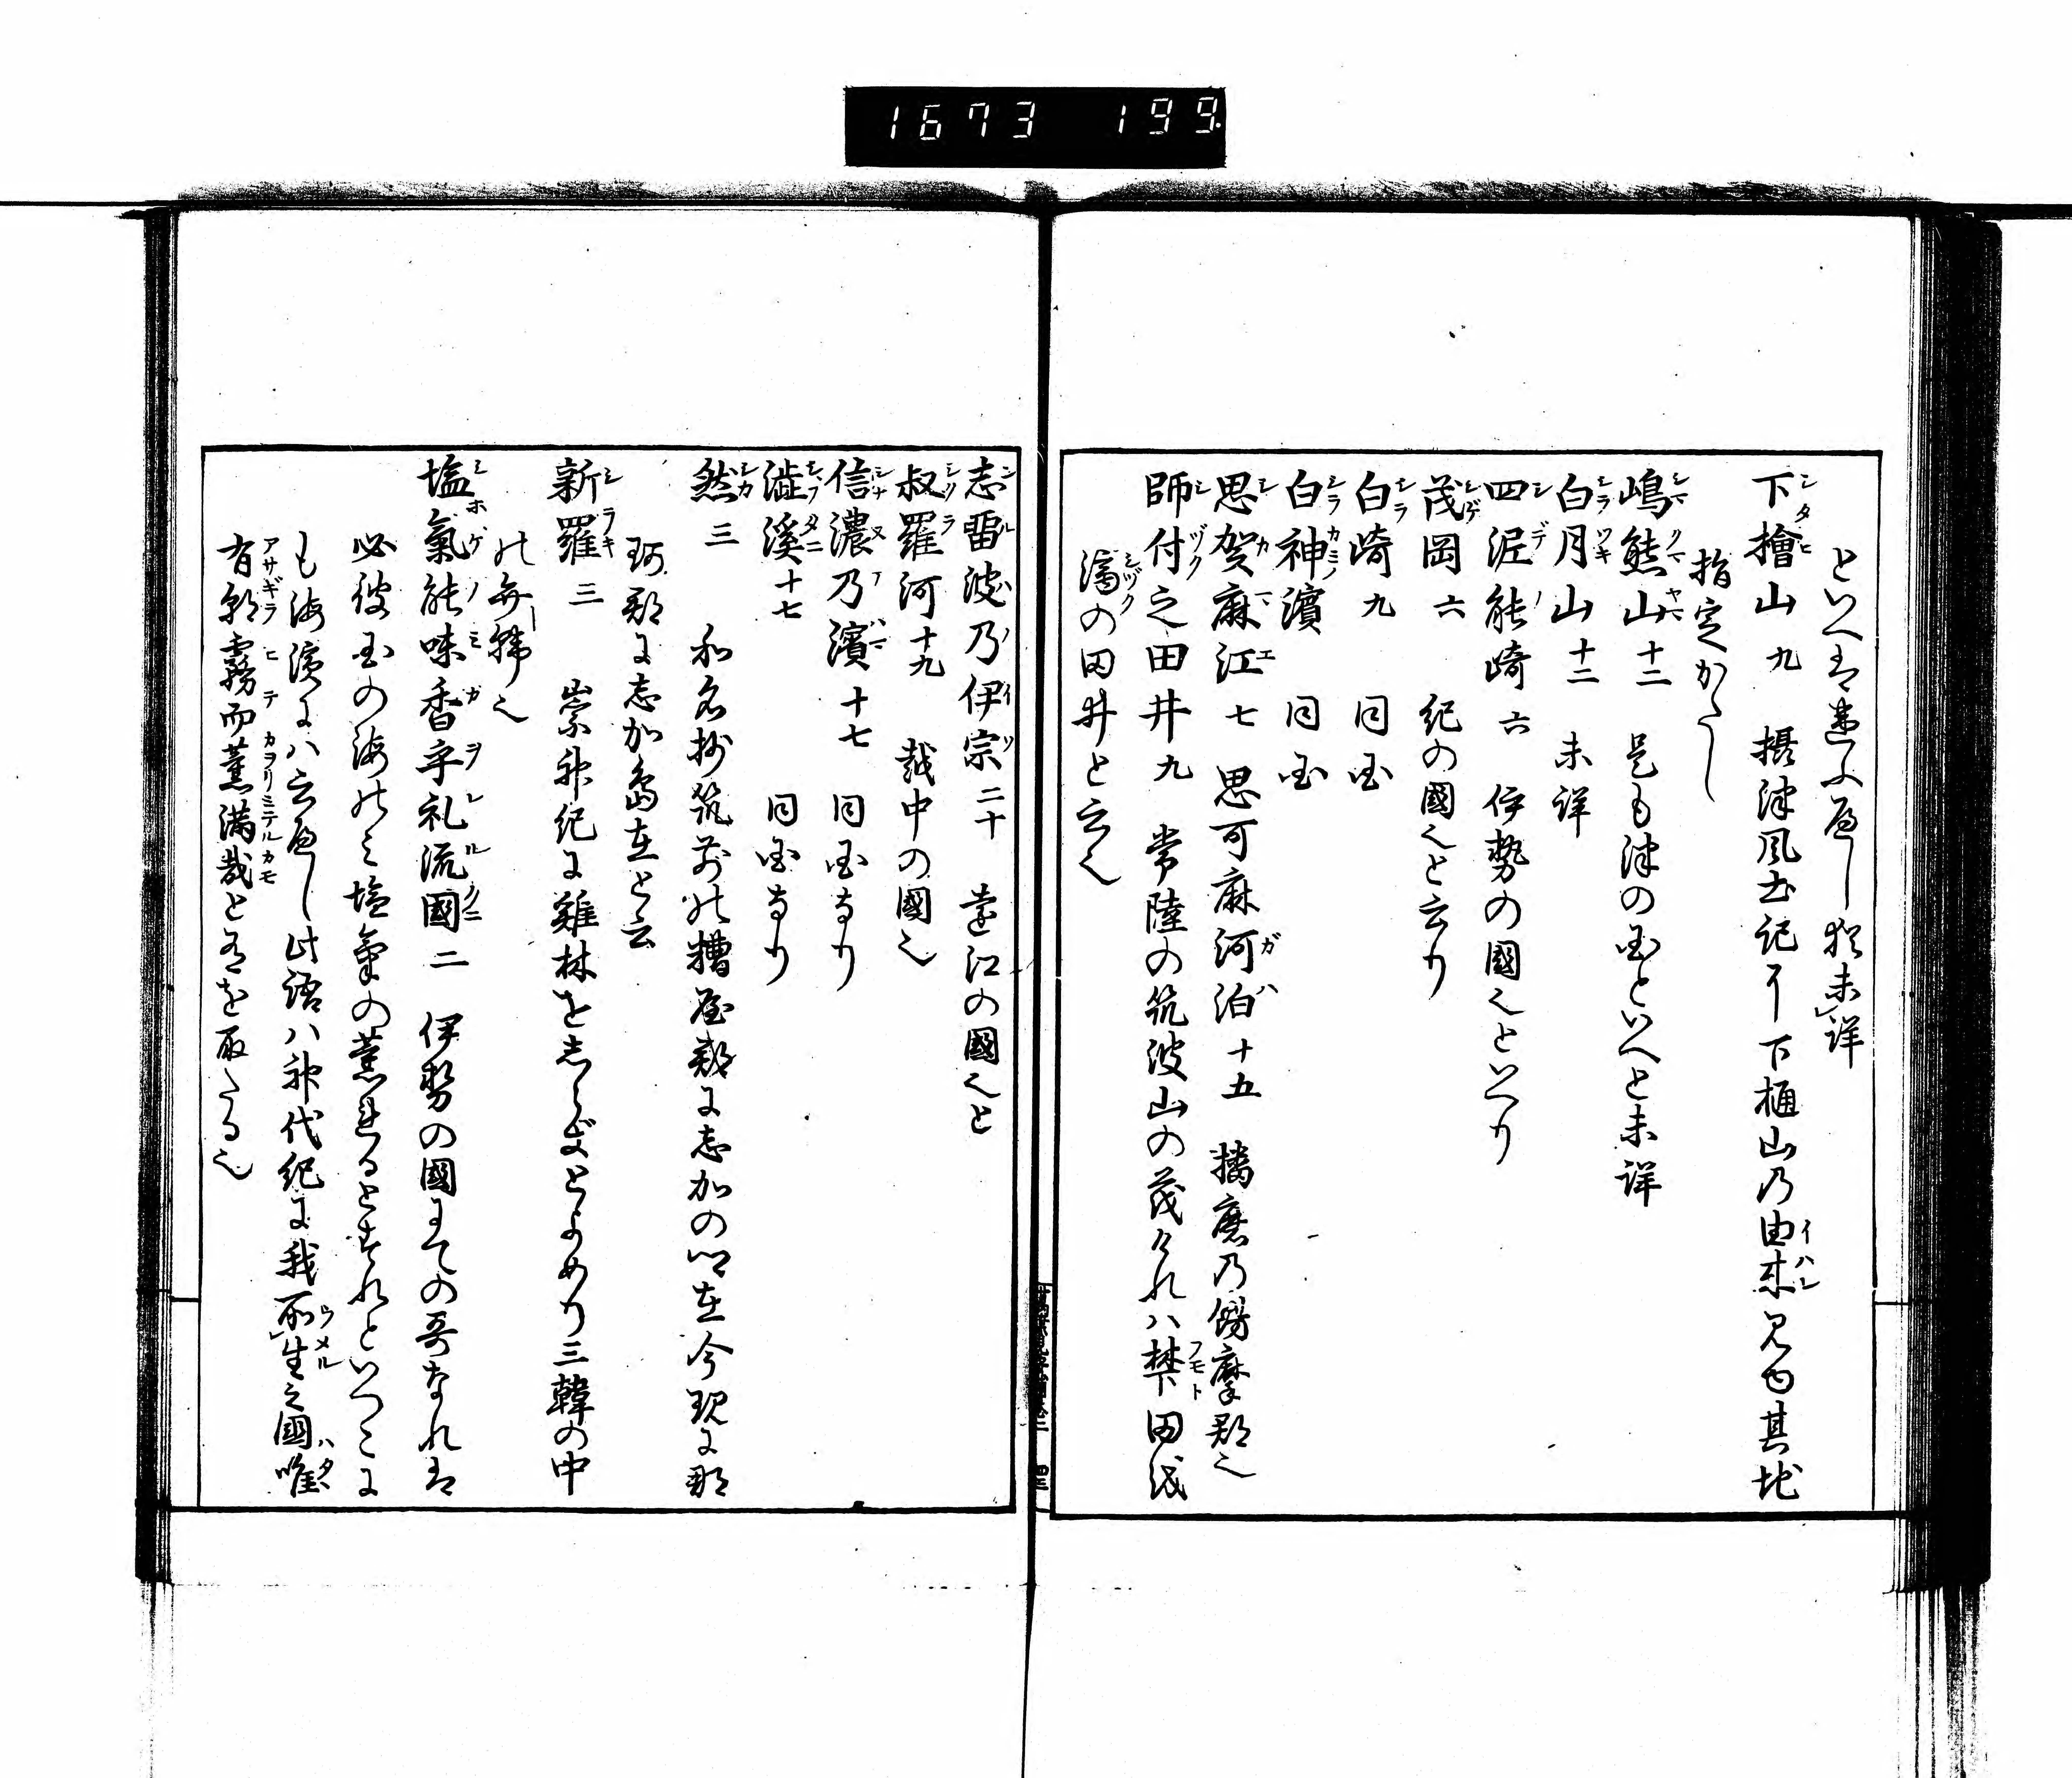 1673 199.
といへは違ふめし猶未詳
下檜山 九 摂津風土記に下樋山乃由来見ゆ其地
指定かたし
嶋熊山 十二 是も津の国といへと未詳
白月山 十二 未詳
四泥能崎 六 伊勢の國也といへり
茂岡 六 紀の國也と云り
白崎 九 同国
白神濱 同国
思賀麻江 七 思可麻河泊 十五 播磨乃餝摩郡也
師付之田井 九 常陸の筑波山の茂けれハ禁下田歟
滴の田井と云也
志留波乃伊宗 二十 遠江の國也と
叔羅河 十九 越中の國也
信濃乃濱 十七 同国なり
澁溪 十七 同国なり
然 三 和名抄筑前の糟屋郡に志加の郷在今現に那
珂郡に志加島在と云
新羅 三 崇神紀に雞林をしらきとよめり三韓の中
の弁韓也
塩氣能味香乎礼流國 二 伊勢の國にての哥なれは
必彼国の海のミ塩氣の薫れるとすれといつこに
も海濱にハ云へし此語ハ神代紀に我所生之國唯
有朝霧而薫満哉と有を取たる也